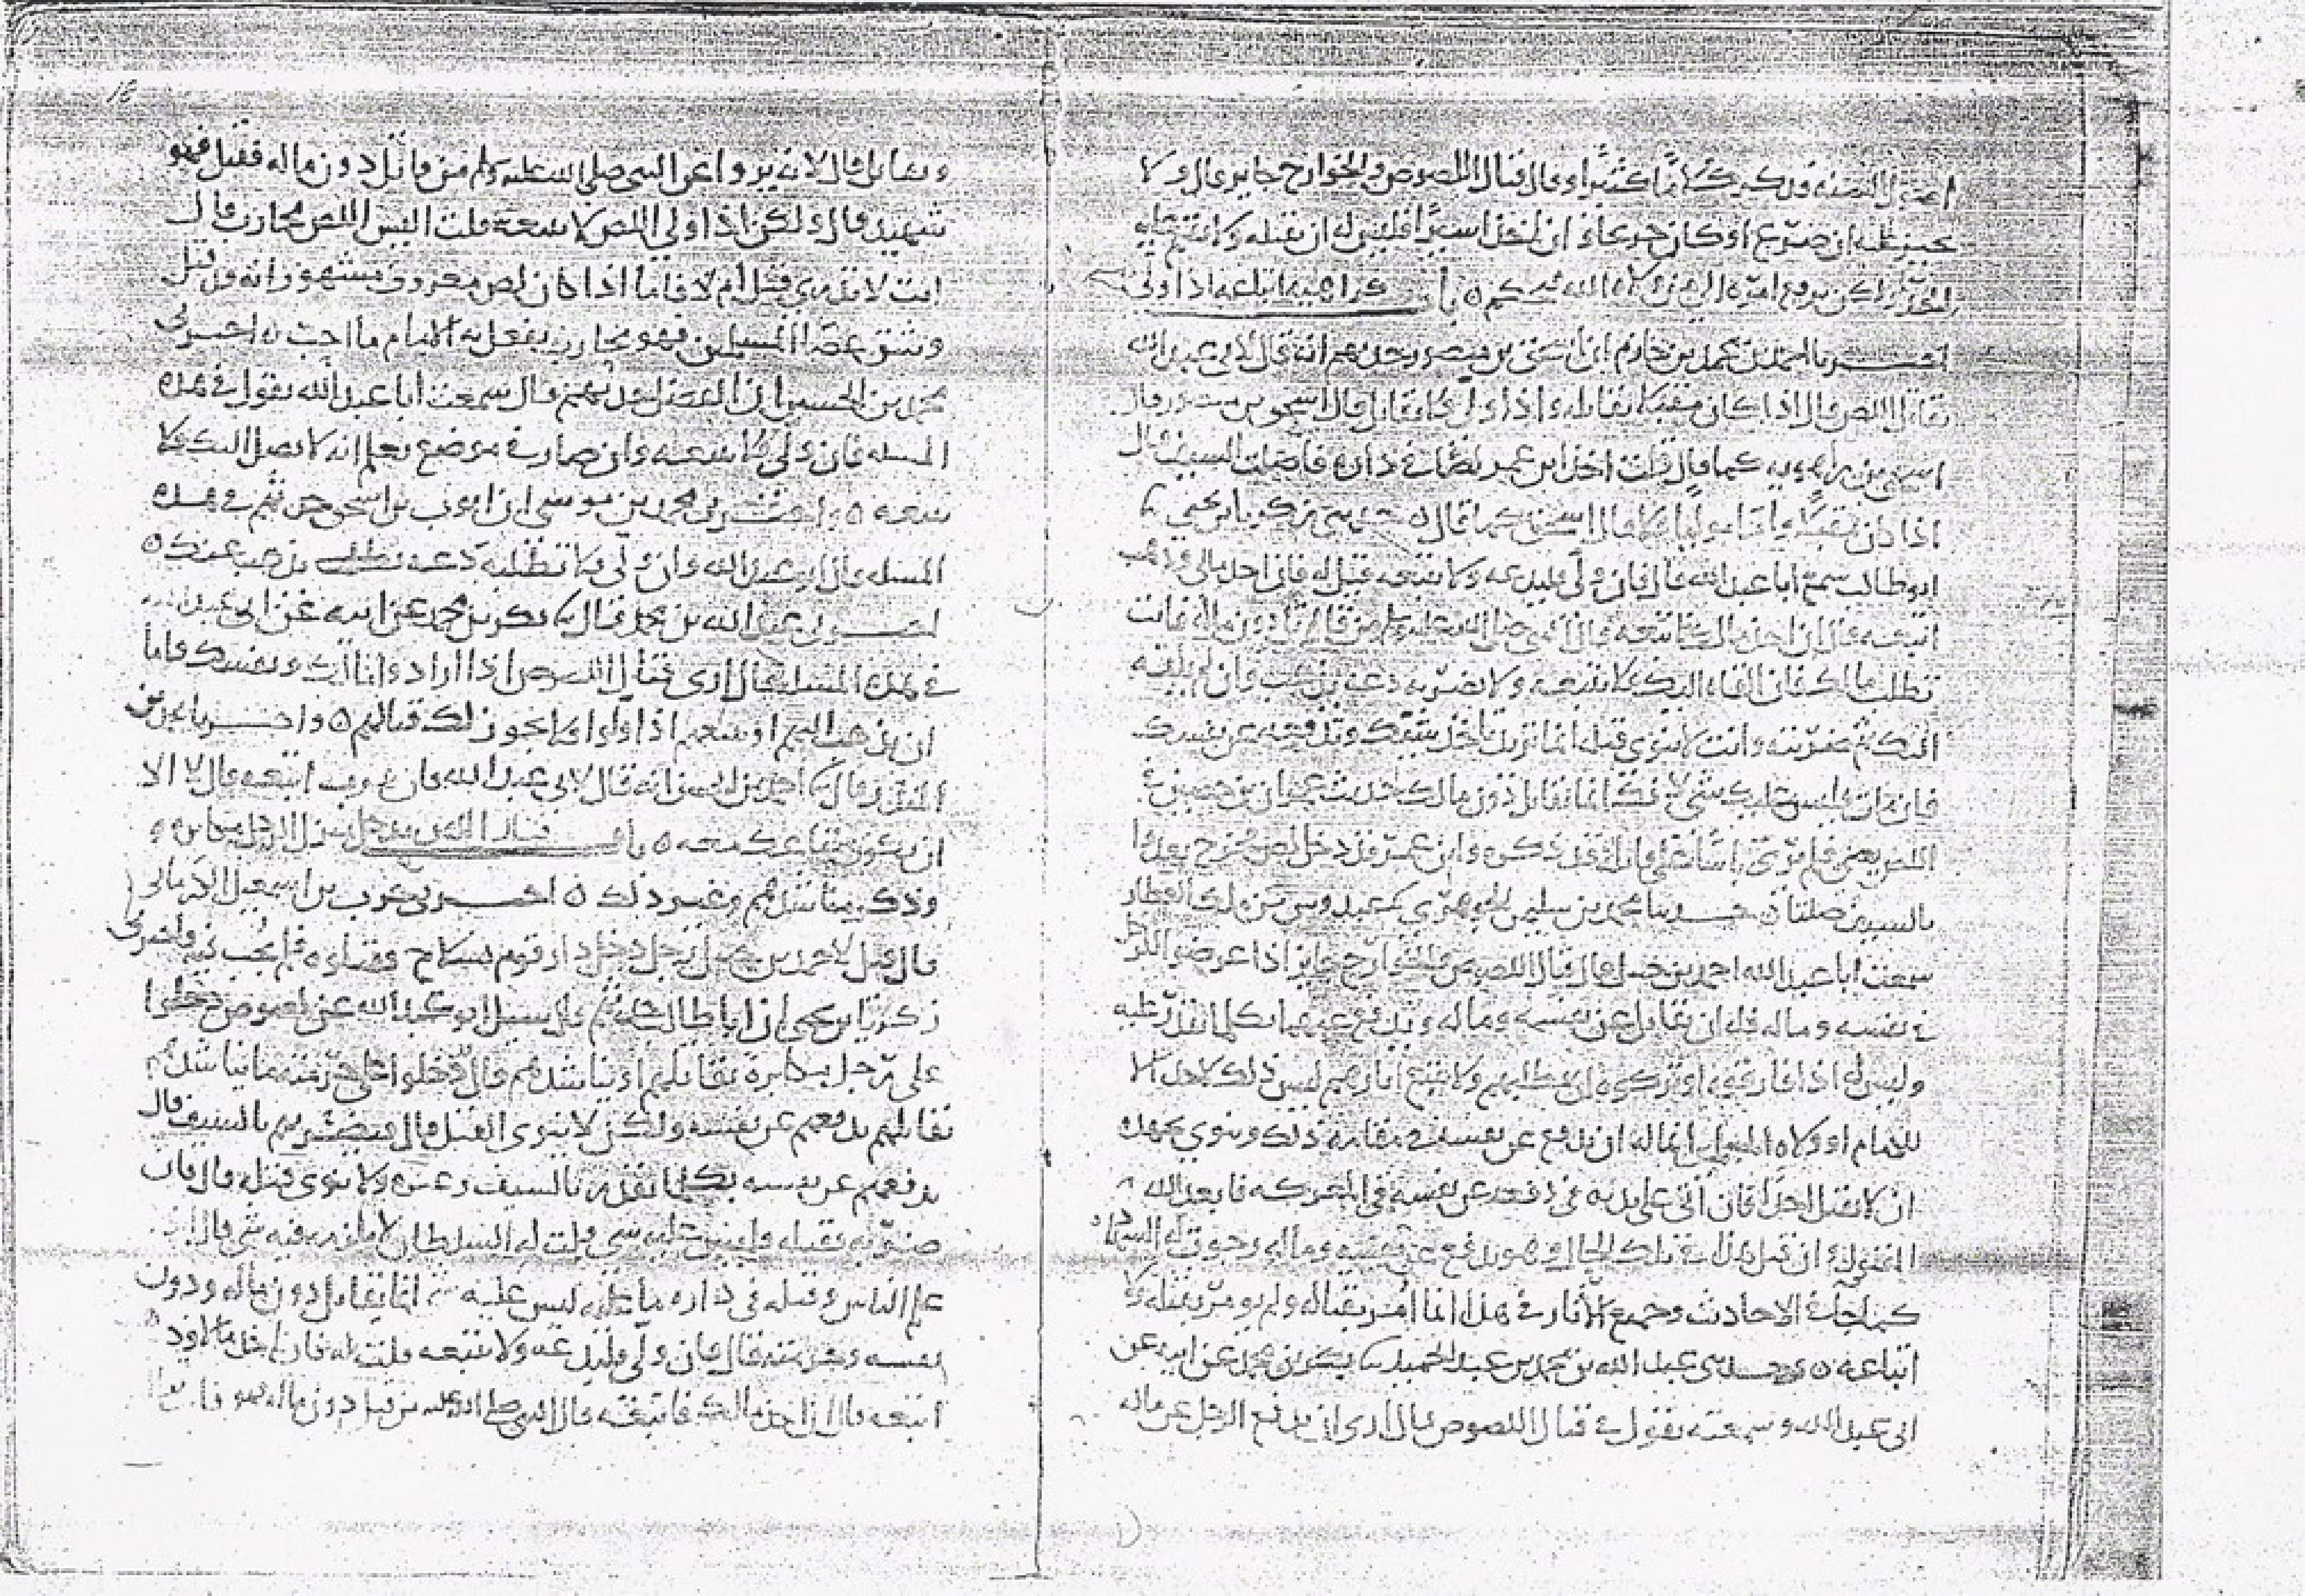 قال قتال اللصوص والخوارج جايز قال ولا
يجيز عليه ان صرع او كان جريحا وان اخذ اسيرا فليس له ان يقتله ولا يقيم عليه
الحد ولكن يرفع امره الى من ولاه الله باب كراهية اتباعه اذا ولى
محمد بن حازم ان اسحق بن منصور حدثهم انه قال لابي عبد الله
يقاتل اللص قال اذا كان مقبلا يقاتله واذا ولى فلا يقاتل قال اسحق بن منصور قال
اسحق بن راهويه كما قال قلت اخذ ابن عمر لصا في داره فاصلت السيف قال
اذا كان مقبلا واما موليا فلا قال اسحق كما قال حدثني زكريا بن يحيى
ابو طالب سمع ابا عبد الله قال فان ولى فليدعه ولا يتبعه قيل له فان اخذ مالي وذهب
اتبعه قال ان اخذ مالك فاتبعه قال النبي صلى الله عليه وسلم من قاتل دون ماله فانت
تطلب مالك فان القاه اليك فلا تتبعه ولا تضربه دعه يذهب وان لم يلقه
اليك ثم ضربته وانت لا تنوي قتله انما تريد تاخذ شيئك وتدفعه عن نفسك
فان مات فليس عليك شي لانك انما تقاتل دون مالك حديث عمران بن حصين في
اللص يعني فلم ير باسا على قاتله قد ذكره وابن عمر قد دخل لص فخرج يعدوا
بالسيف صلتا حدثنا محمد بن سليمن الجوهري عبدوس بن مالك العطار
سمعت ابا عبد الله احمد بن حنبل قال قتال اللصوص والخوارج جايز اذا عرضوا للرجل
في نفسه وماله فله ان يقاتل عن نفسه وماله ويدفع عنهما بكل ما يقدر عليه
وليس له اذا فارقوه او تركوه ان يطلبهم ولا يتبع اثارهم ليس ذلك لاحد الا
للامام او ولاه المسلمين انما له ان يدفع عن نفسه في مقامه ذلك وينوي بجهده
ان لا يقتل احدا فان اتى على يديه في دفعه عن نفسه في المعركه فابعد الله
المقتول وان قتل هذا في تلك الحال وهو يدفع عن نفسه وماله رجوت له الشهاده
كما جا في الاحاديث وجميع الاثار في هذا انما امر بقتاله ولم يومر بقتله ولا
اتباعه وحدثني عبد الله بن محمد بن عبد الحميد بكر بن محمد عن ابيه عن
ابي عبد الله وسمعته يقول في قتال اللصوص قال ارى ان يدفع الرجل عن ماله
ويقاتل قال لانه يروا عن النبي صلى الله عليه وسلم من قاتل دون ماله فقتل فهو
شهيد قال ولكن اذا ولى اللص لا تتبعه قلت اليس اللص محارب قال
انت لا تدري قتل ام لا فاما اذا كان لص معروف مشهور انه قد قتل
وشق عصا المسلمين فهو محارب يفعل به الامام ما احب اخبرني
محمد بن الحسين ان الفضل حدثهم قال سمعت ابا عبد الله يقول في هذه
المسله فان ولى فلا تتبعه وان صار في موضع تعلم انه لا يصل اليك فلا
تتبعه واخبرني محمد بن موسى ان ايوب بن اسحق حدثهم في هذه
المسله قال ابو عبد الله وان ولى فلا تطلبه دعه يذهب عنك
اخبرني عبد الله بن محمد قال بكر بن محمد عن ابيه عن ابي عبد الله
في هذه المسله قال ارى قتال اللصوص اذا ارادوا مالك ونفسك فاما
ان تذهب اليهم او تتبعهم اذا ولوا فلا يجوز لك قتالهم واخبرنا
المنذر قال احمد بن الحسن انه قال لابي عبد الله فان هرب اتبعه قال لا الا
ان يكون متاعك معه باب قتال اللص يدخل منزل الرجل مكابره
وذكر مناشدتهم وغير ذلك اخبرني حرب بن اسمعيل الكرماني
قال قيل لاحمد بن حنبل رجل دخل دار قوم بسلاح فقتلوه فلم يجب فيه واخبرني
زكريا بن يحيى ان ابا طالب حدثهم قال سئل ابو عبد الله عن لصوص دخلوا
على رجل مكابرة يقاتلهم او يناشدهم قال قد دخلوا على حرمته ما يناشدهم
يقاتلهم يدفعهم عن نفسه ولكن لا ينوي القتل قال فيضربهم بالسيف قال
يدفعهم عن نفسه بكل ما يقدر بالسيف وغيره ولا ينوي قتله قال فان
ضربه فقتله وليس عليه شي قلت له السلطان لا يلزمه فيه شي قال
علم الناس وقتله في داره ما عليه ليس عليه شي انما يقاتل دون ماله ودون
نفسه وحرمته قال فان ولى فليدعه ولا يتبعه قلت له فان اخذ مالا وذهب
اتبعه قال ان اخذ مالك فاتبعه قال النبي صلى الله عليه من قتل دون ماله فهو